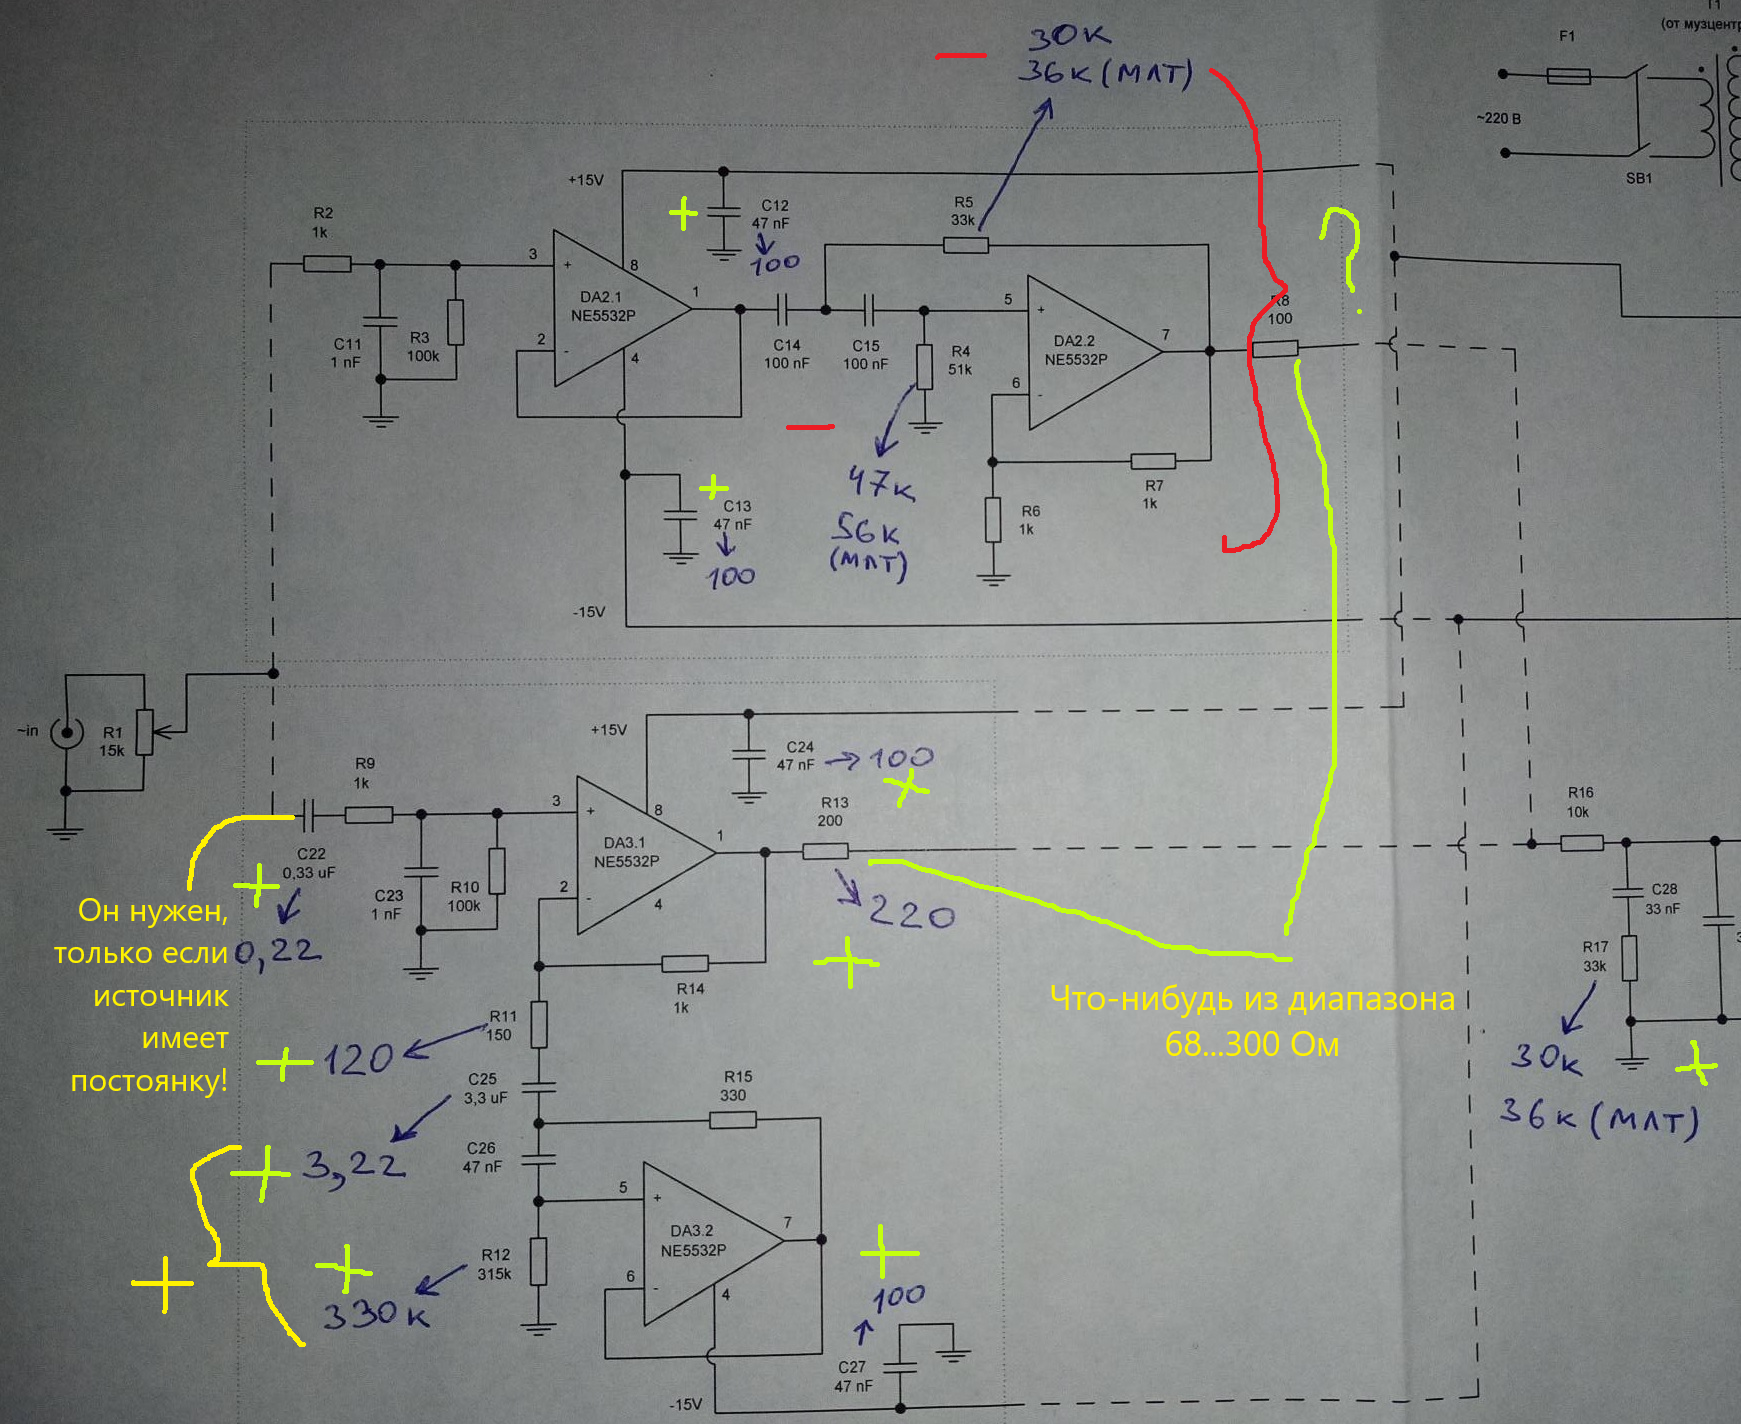 30к
36к (МЛТ)
T1
(от музцентр
F1
~220 В
SB1
+15V
C12
47 nF
100
R5
33k
R2
1k
3
+
8
DA2.1
NE5532P
1
2
-
4
C11
1 nF
R3
100k
C14
100 nF
C15
100 nF
R4
51k
5
+
DA2.2
NE5532P
7
6
-
R8
100
?
47к
56к
(МЛТ)
C13
47 nF
100
R7
1k
R6
1k
-15V
~in
R1
15k
+15V
C24
47 nF
100
R9
1k
3
+
8
DA3.1
NE5532P
1
R13
200
R16
10k
C22
0,33 uF
2
-
4
C23
1 nF
R10
100k
220
C28
33 nF
Он нужен,
только если
источник
имеет
постоянку!
0,22
R14
1k
R17
33k
Что-нибудь из диапазона
68...300 Ом
R11
150
120
30к
36к (МЛТ)
C25
3,3 uF
R15
330
C26
47 nF
3,22
5
+
DA3.2
NE5532P
7
R12
315k
330к
6
-
4
100
C27
47 nF
-15V